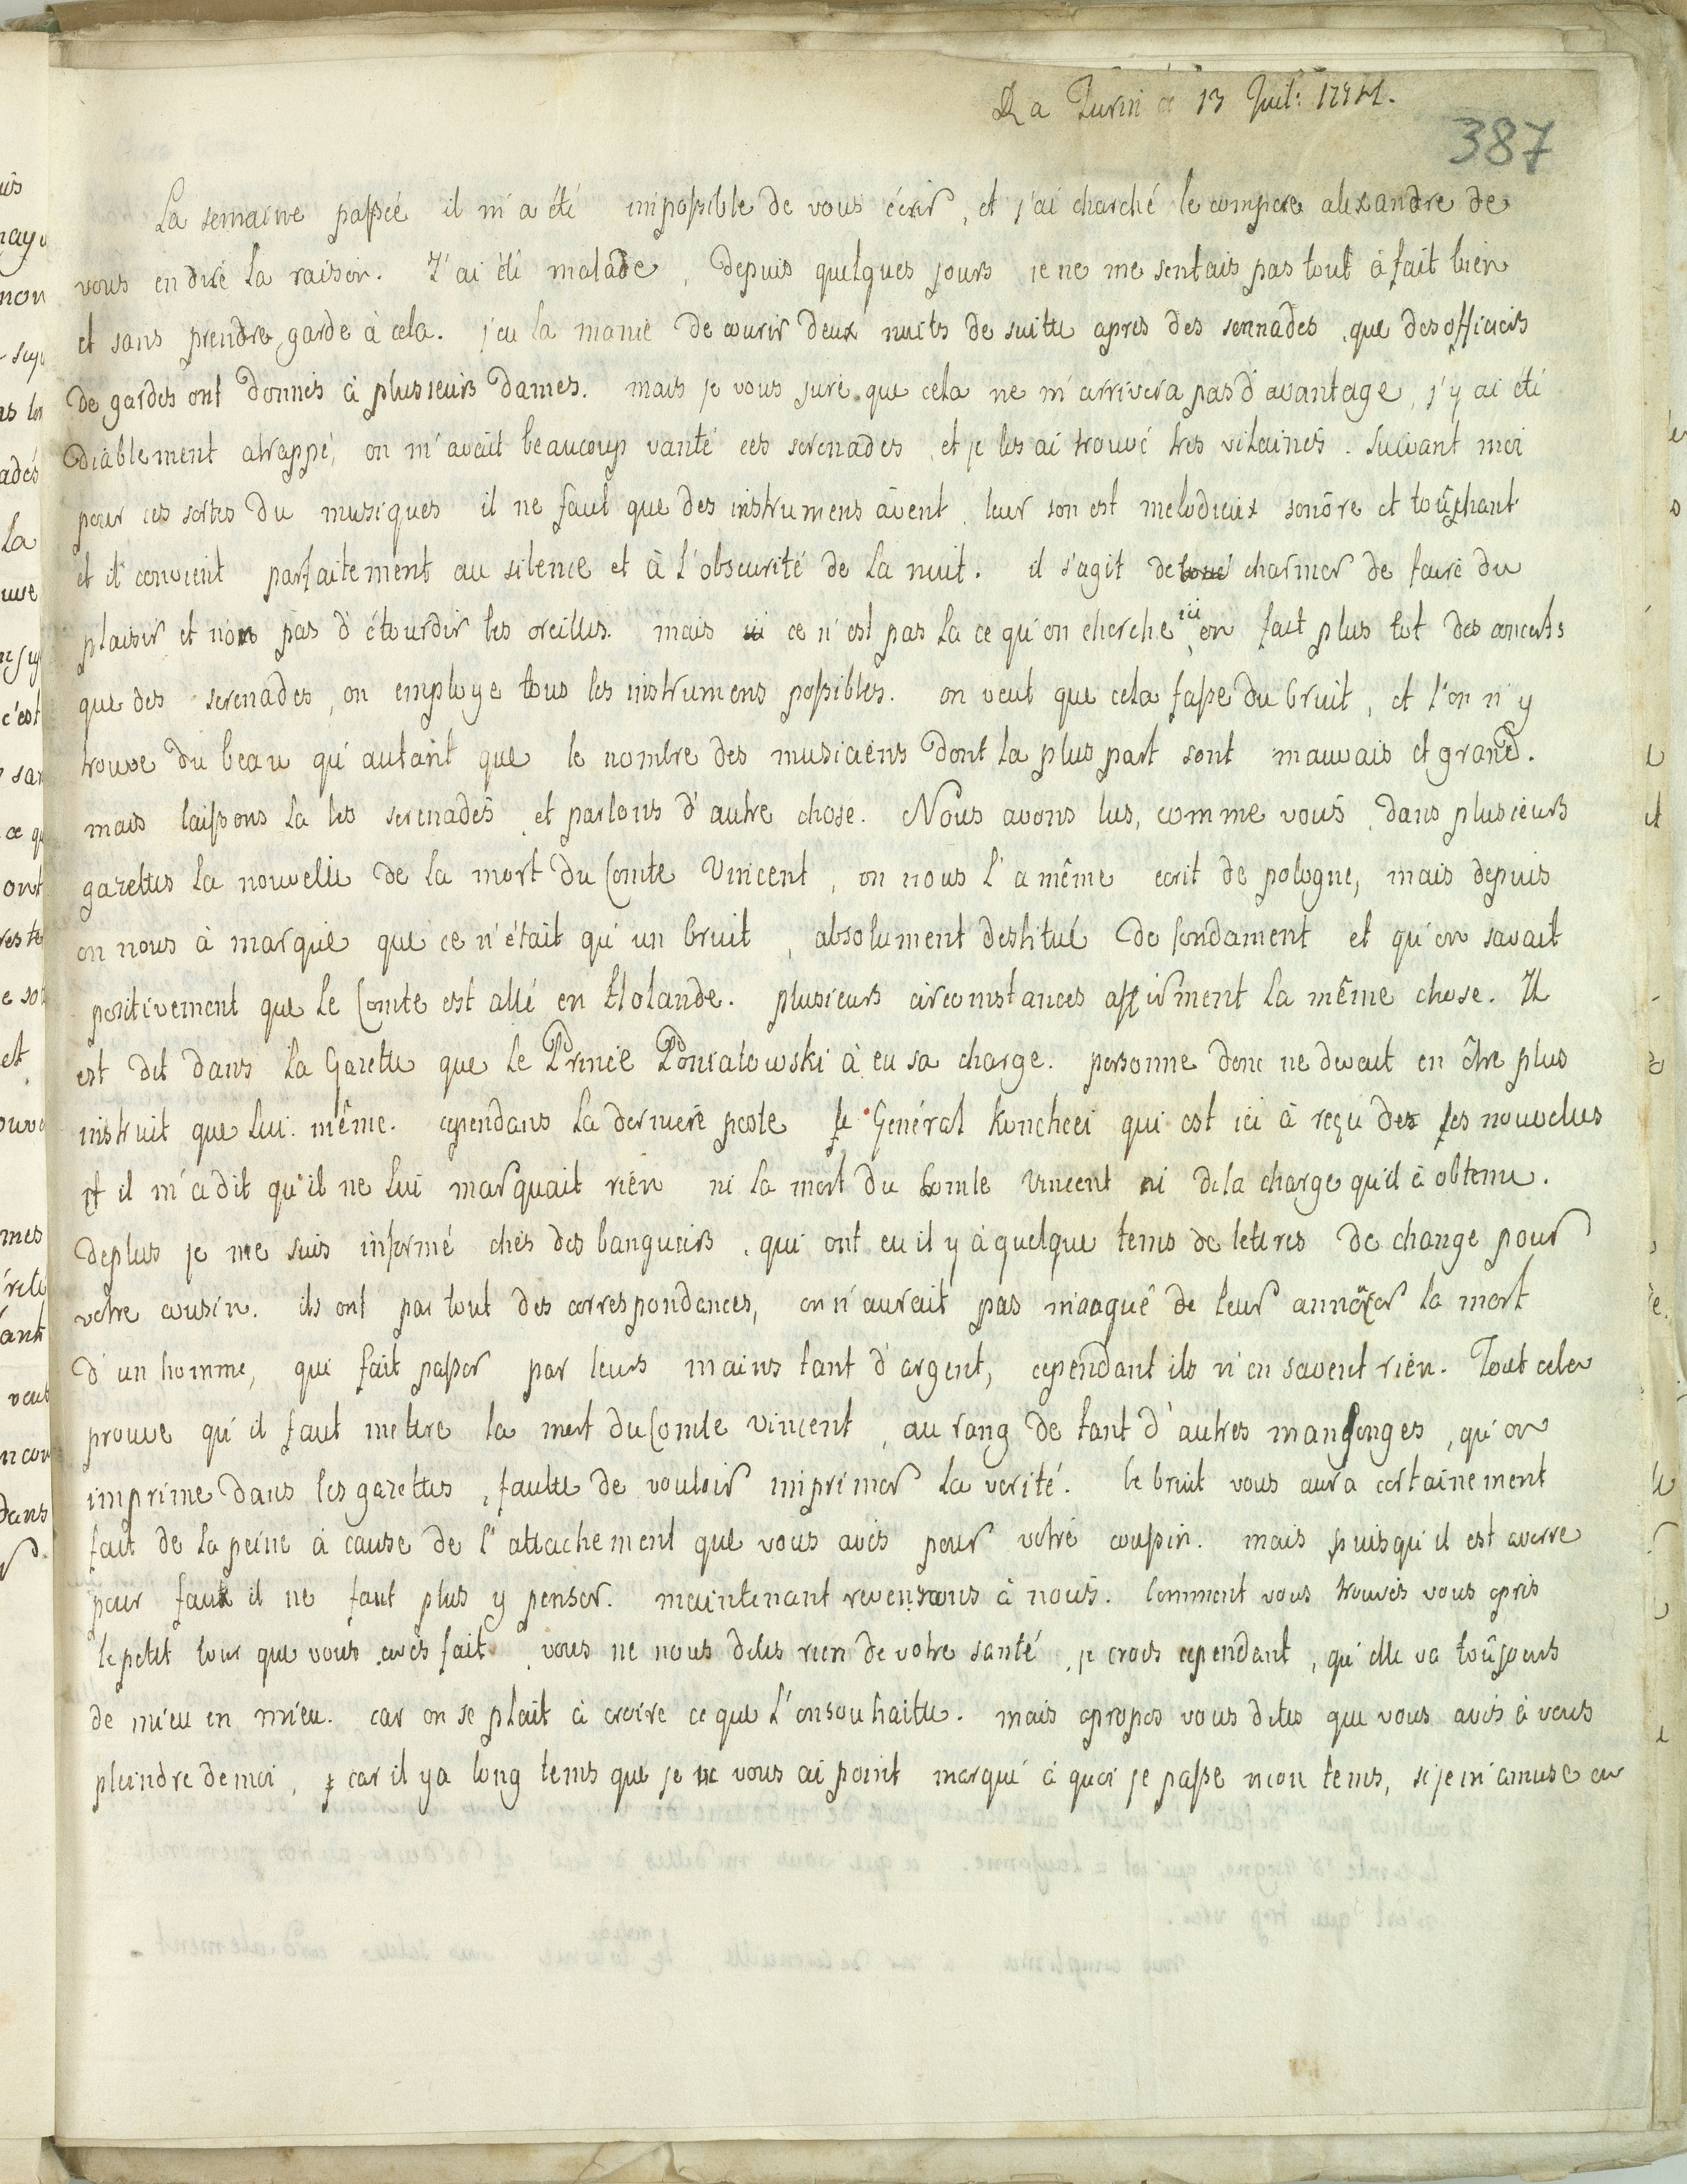 a Turin ce 13 Juil:
387
La semaine passée il m'a été impossible de vous écrir, et j'ai charché le compere alexandre de
vous en dire la raison. J'ai été malade, depuis quelques jours je ne me sentais pas tout à fait bien
et sans prendre garde à cela. j'eu la manie de courir deux nuits de suitte apres des serenades, que des officiers
de gardes ont donnés à plusieurs dames. mais je vous jure que cela ne m'arrivera pas d'avantage, j'y ai été
diablement atrappé, on m'avait beaucoup vanté ces serenades, et je les ai trouvé tres vilaines. suivant moi
pour ces sortes du musiques il ne faut que des instrumens àvent, leur son est melodieux sonôre et touchant
et il convient parfaitement au silence et à l'obscurité de la nuit. il s'agit de charmer de faire du
plaisir et non pas d'étourdir les oreilles. mais ce n'est pas la ce qu'on cherche ici, on fait plus tot des concerts
que des serenades, on employe tous les instrumens possibles. on veut que cela fasse du bruit, et l'on n'y
trouve du beau qu'autant que le nombre des musiciens dont la plus part sont mauvais et grand.
mais laissons la les serenades, et parlons d'autre chose. Nous avons lus, comme vous, dans plusieurs
gazettes la nouvelle de la mort du Comte Vincent, on nous l'a même ecrit de pologne, mais depuis
on nous à marqué que ce n'était qu'un bruit, absolument destitué de fondament et qu'on savait
positivement que le Comte est allé en Holande. plusieurs circonstances affirment la même chose. Il
est dit dans la Gazette que le Prince Poniatowski à eu sa charge. personne donc ne devait en être plus
instruit que lui même. cependans la derniere poste le Général qui est ici à reçu des ses nouvelles
et il m'a dit qu'il ne lui marquait rien ni la mort du Comte Vincent ni dela charge qu'il à obtenu.
deplus je me suis informé chés des banquiers, qui ont eu il y à quelque tems de lettres de change pour
votre cousin. ils ont par tout des correspondances, on n'aurait pas manqué de leur annôcer la mort
d'un homme, qui fait passer par leurs mains tant d'argent, cependant ils n'en savent rien. Tout cela
prouve qu'il faut mettre la mort du Comte Vincent, au rang de tant d'autres mansonges, qu'on
imprime dans les gazettes, faulte de vouloir imprimer la verité. le bruit vous aura certainement
fait de la peine à cause de l'attachement que vous avés pour votre coussin. mais puisqu'il est averre
pour faux il ne faut plus y penser. maintenant revensons à nous. Comment vous trouvés vous après
le petit tour que vous avés fait, vous ne nous dites rien de votre santé, je crois cependant, qu'elle va toûjours
de mieu en mieu. car on se plait à croire ce que l'onsouhaitte. mais apropos vous dites que vous avés à vous
pleindre de moi, car il y a long tems que je ne vous ai point marqué à quoi je passe mon tems, si je m'amuse ou